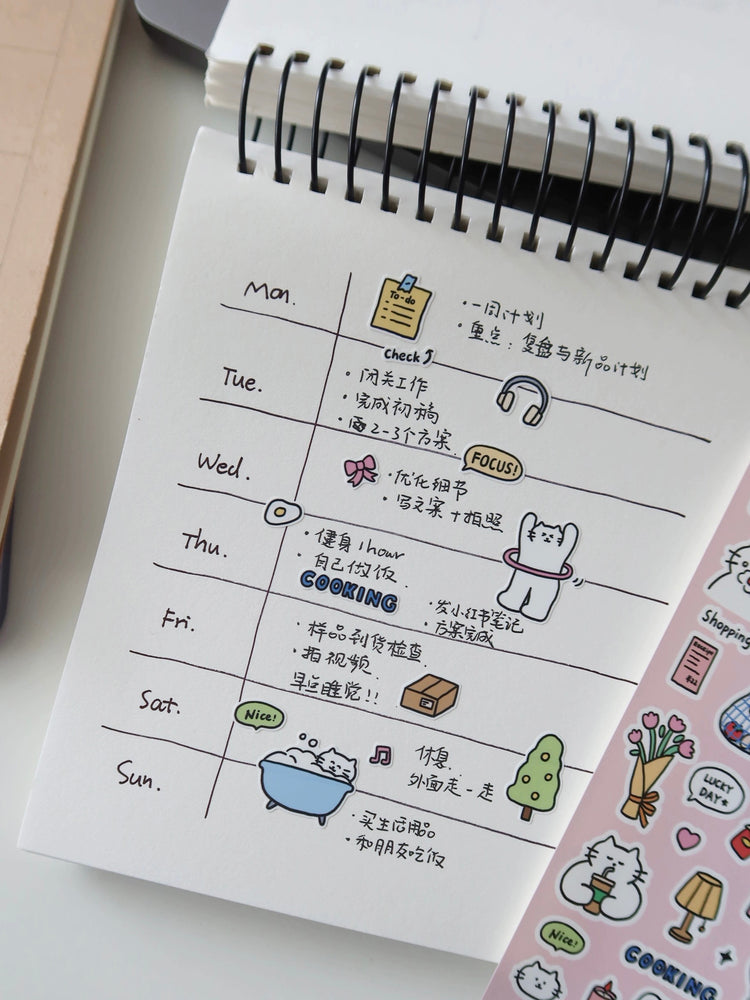 Mon.
To-do
·一周计划
·重点：复盘与新品计划
Check
Tue.
·闭关工作
·完成初稿
·2-3个方案.
FOCUS!
Wed.
·优化细节
·写文案+拍照
Thu.
·健身1hour
·自己做饭.
COOKING
·发小红书笔记
·方案完成
Fri.
·样品到货检查.
·拍视频.
早点睡觉!!
Sat.
Nice!
休息.
外面走一走
Sun.
·买生活用品
·和朋友吃饭
Shopping
RECEIPT
LUCKY
DAY
Nice!
COOKING